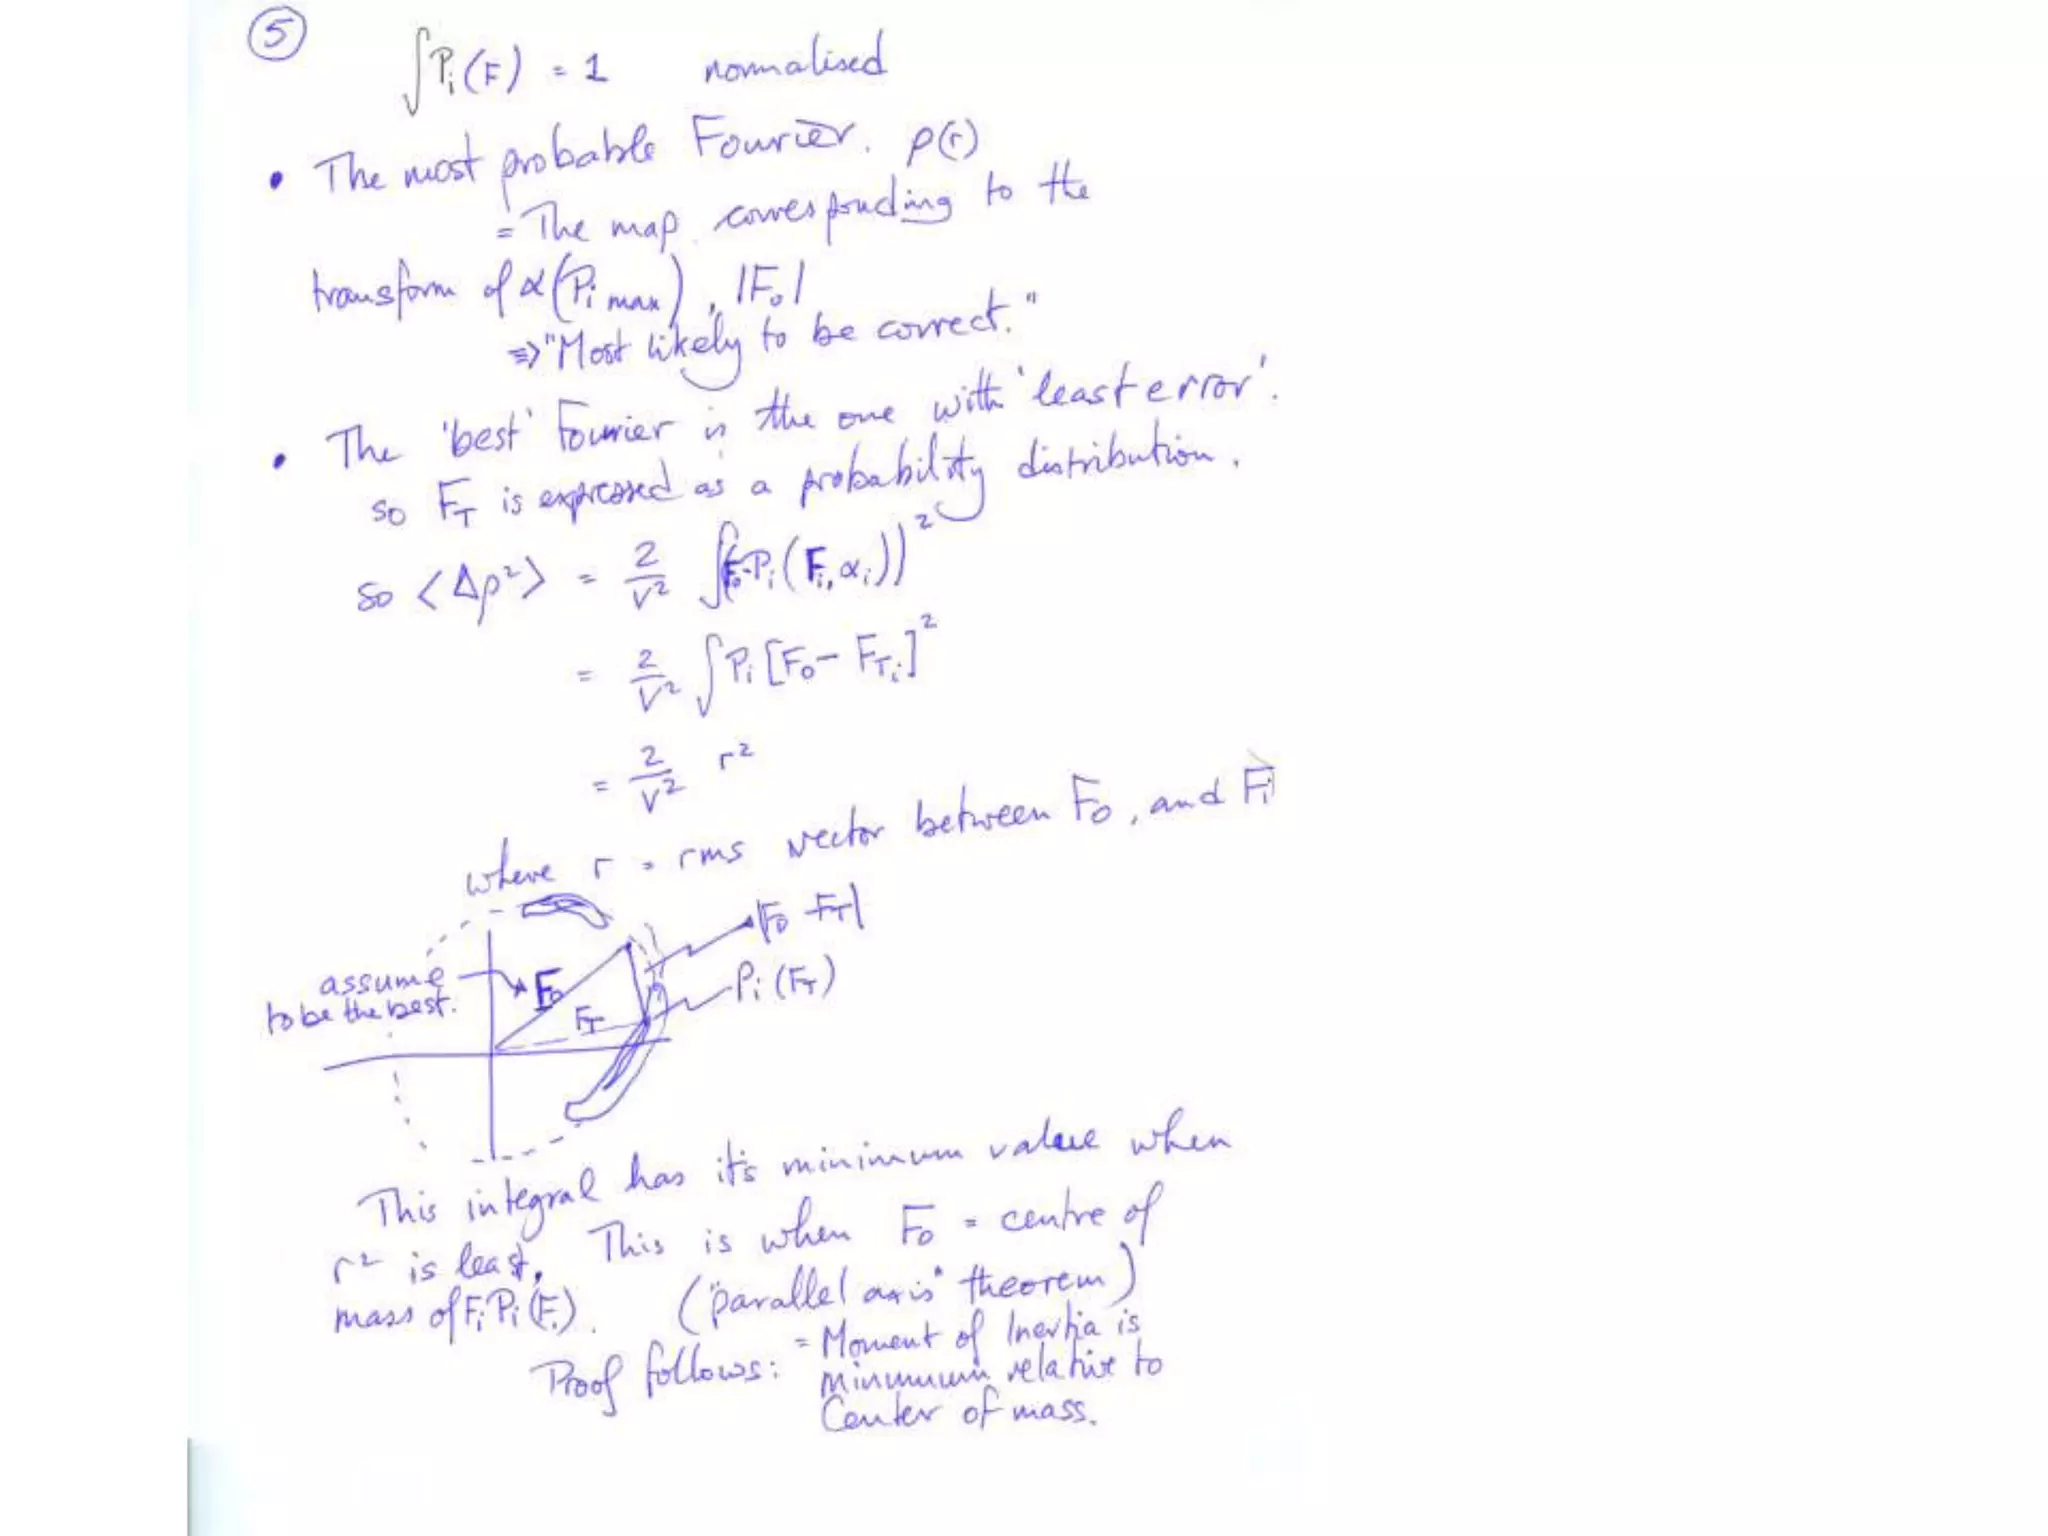 5
∫Pi(F) = 1 normalised
• The most probable Fourier. ρ(r)
= The map corresponding to the
transform of α(Pi max), |Fo|
⇒ "Most likely to be correct."
• The 'best' Fourier is the one with 'least error'.
so FT is expressed as a probability distribution.
so <Δρ²> = 2/V² ∫(Fo-Pi(Fi, αi))²
= 2/V² ∫Pi[Fo - FTi]²
= 2/V² r²
where r = rms vector between Fo, and Fi
|Fo - FT|
assume
to be the best.
Fo
FT
Pi (FT)
This integral has it's minimum value when
r² is least. This is when Fo = centre of
mass of Fi Pi (Fi). ("parallel axis" theorem)
Proof follows: = Moment of Inertia is
minimum relative to
Center of mass.